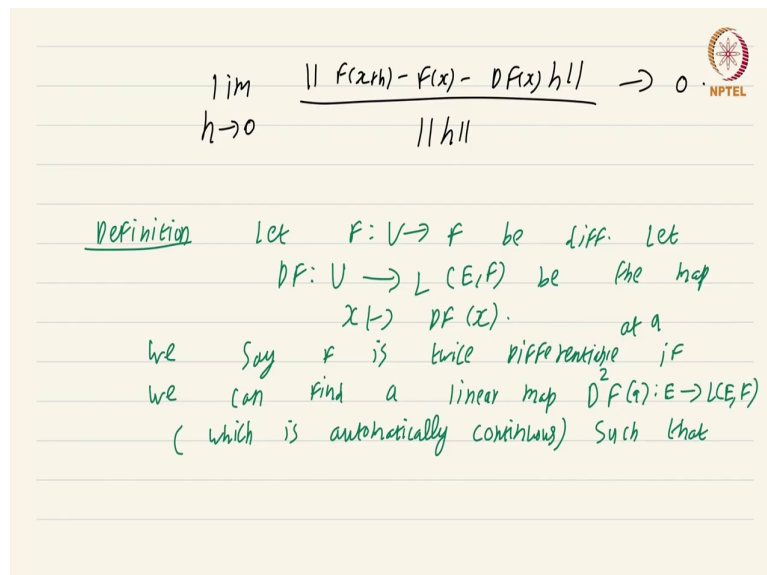 lim || F(x+h) - F(x) - DF(x) h || → 0.
h→0 || h ||
NPTEL
Definition Let F: U → F be diff. Let
DF: U → L (E, F) be the map
x ↦ DF (x).
We say F is twice differentiable at a if
we can find a linear map D²F(a): E → L(E, F)
( which is automatically continuous) such that